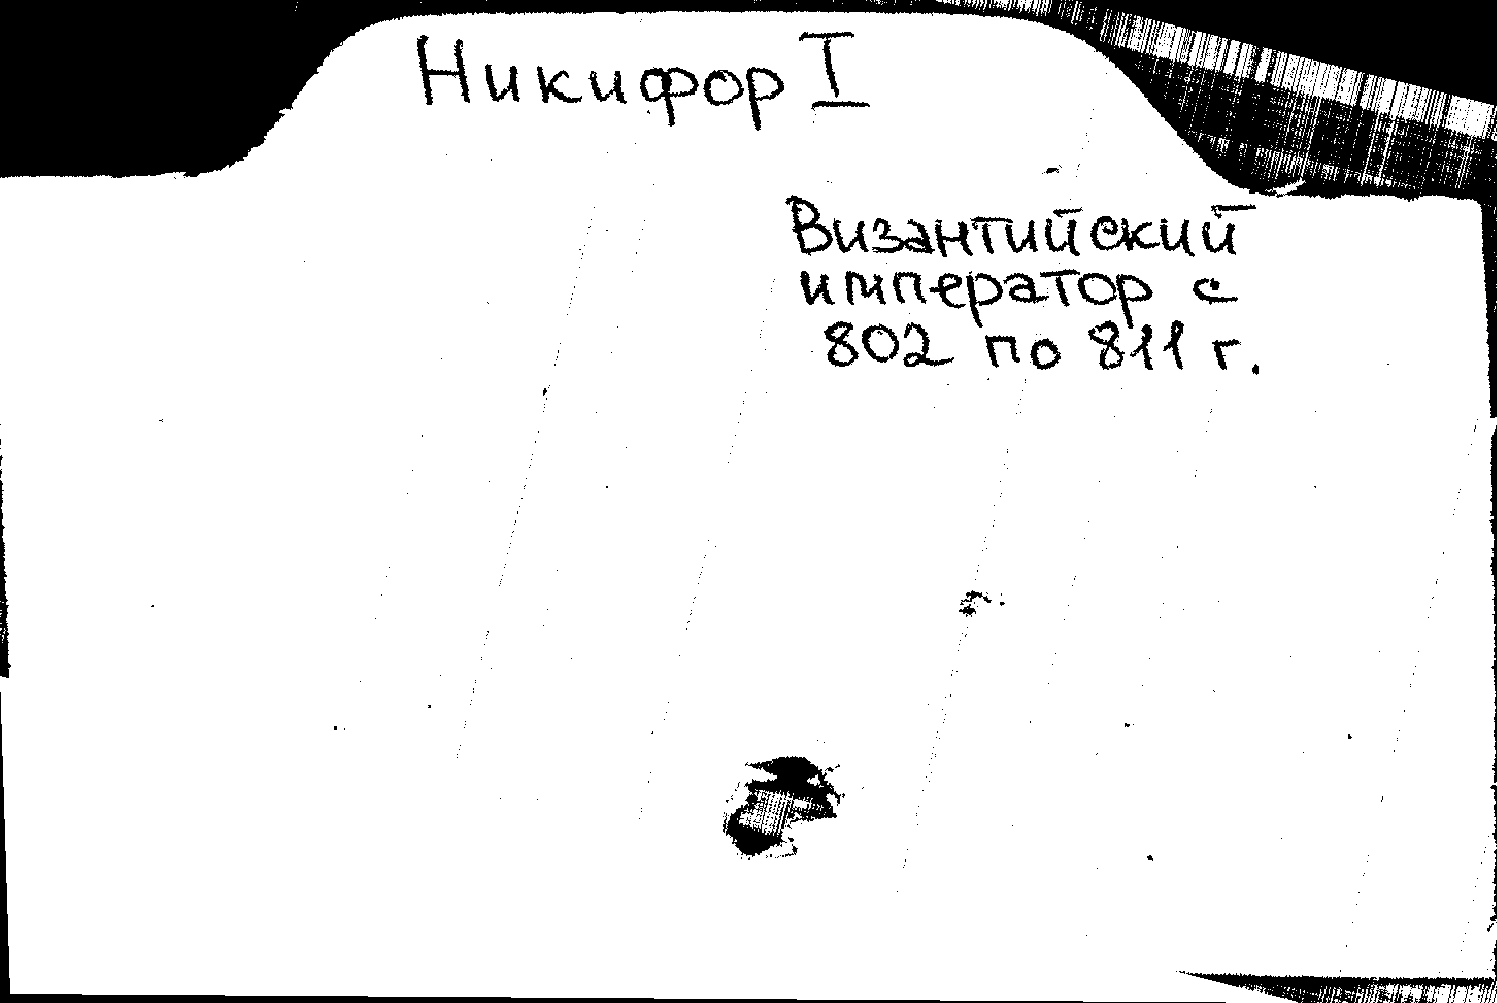 Никифор I
Византийский
император с
802 по 811 г.